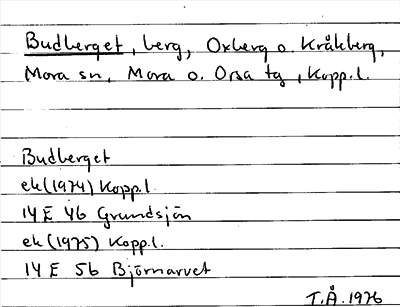 Budberget, berg, Oxberg o. Kråkberg,
Mora sn, Mora o. Orsa tg, Kopp.l.
Budberget
ek (1974) Kopp.l.
14 E 4b Grundsjön
ek (1975) Kopp.l.
14 E 5b Björnarvet
T.Å. 1976